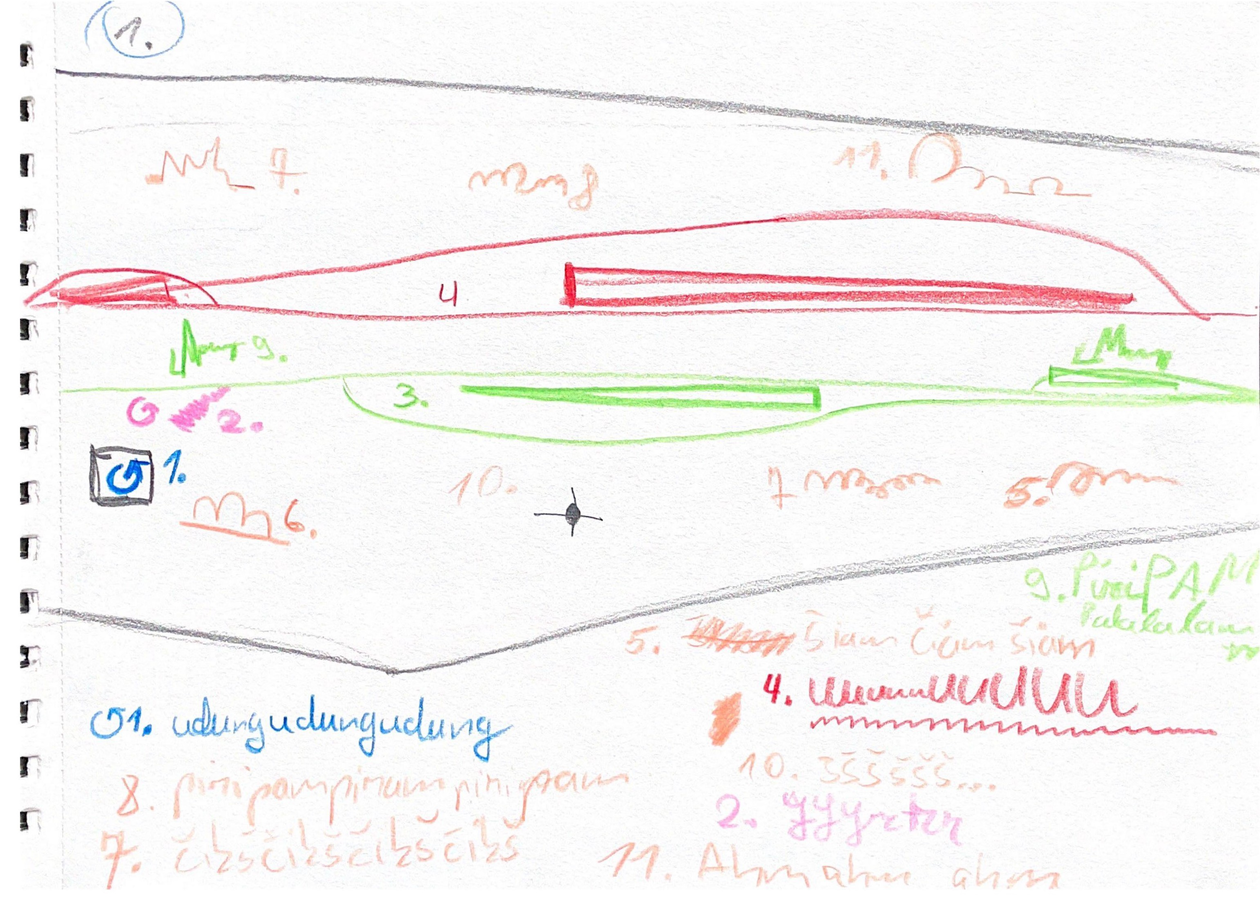 1.
7.
8
11.
4
9.
3.
2.
1.
10.
7
5.
6.
9. PiriPAM
Palalalam
5. Šiam Čiam šiam
4.
1. udungudungudung
8. piripampiripampiripam
10. Šššššš...
2. yyyxtxy
7. čikščikščikščikš
11. Ahm ahm ahm